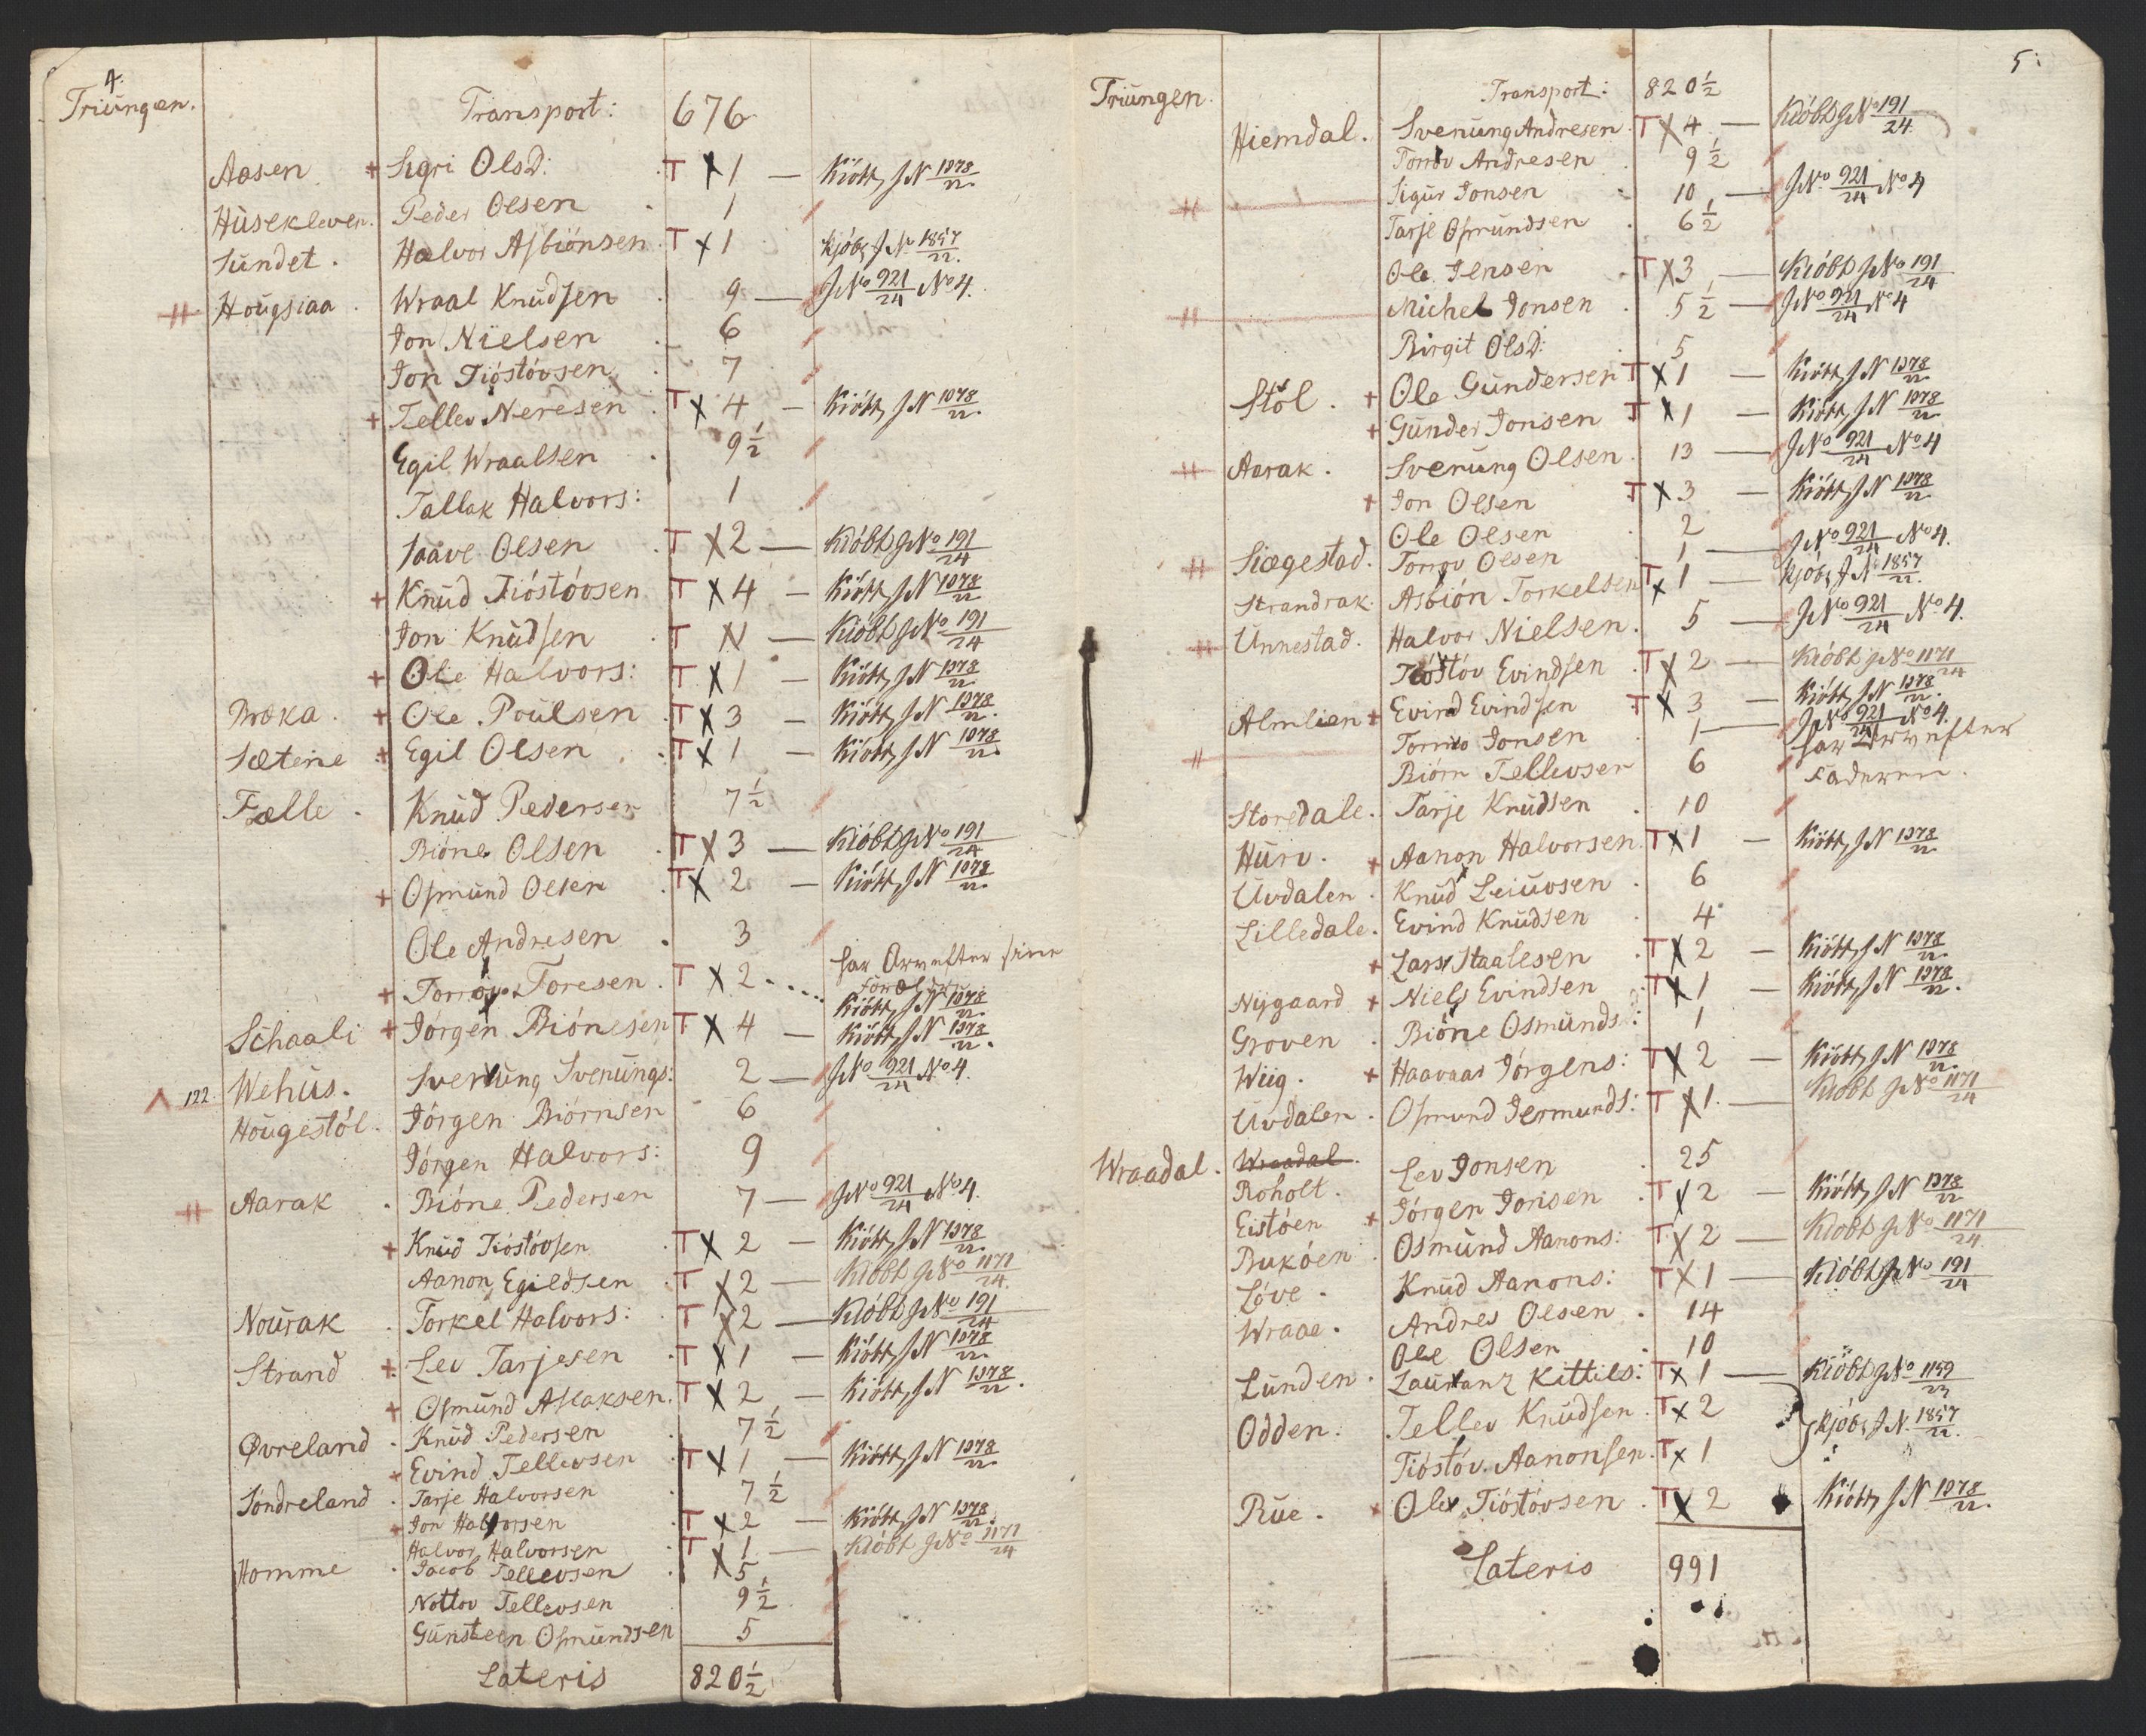 4.
Triüngen.
Transport: 676
Aasen + Sigri OlsD: T X 1 — Kiöbt, JN 1378/22.
Hüsekleven. Peder Olsen . 1
Sündet . Halvor Asbiönsen . T X 1 . Kjöbt JN 1857/22.
++ Hoügsiaa . Wraal Knüdsen . 9 — JNo 921/24 No 4.
Jon Nielsen . 6
Jon Tióstóvsen . 7
+ Tellev Neresen . T X 4 — Kiöbt, JN 1078/22.
Egil Wraalsen . 9 1/2
Tallak Halvors: 1
Saave Olsen . T X 2 — Kióbt JNo 191/24
+ Knüd Tióstóvsen T X 4 — Kiöbt, JN 1078/22
Jon Knüdsen . T — Kióbt JNo 191/24
+ Ole Halvors: T X 1 — Kiöbt, JN 1378/22.
Bræka . + Ole Poülsen . T X 3 — Kiöbt, JN 1378/22.
Sæterie + Egil Olsen . T X 1 — Kiöbt, JN 1078/22.
Fælle . Knüd Pedersen 7 1/2
Bióne Olsen . T X 3 — Kióbt JNo 191/24
+ Osmünd Olsen . T X 2 — Kiöbt, JN 1078/22.
Ole Andresen . 3
+ Torrov Toresen . T X 2 .... har Arv efter sine
Forældre
Kiöbt, JN 1078/22.
Schaali + Jórgen Biónesen T X 4 — Kiöbt, JN 1378/22.
122 Wehüs. Svenüng Svenüngs: 2 — JNo 921/24 No 4.
Hoügestól. Jórgen Biórnsen 6
Jórgen Halvors: 9
++ Aarak . Bióne Pedersen 7 — JNo 921/24 No 4.
+ Knüd Tióstóvsen . T X 2 — Kiöbt, JN 1378/22.
Aanon Egildsen . T X 2 — Kióbt JNo 1171/24.
Noürak . Torkel Halvors: T X 2 — Kióbt JNo 191/24
Strand + Lev Tarjesen . T X 1 — Kiöbt, JN 1078/22.
+ Osmünd Aslaksen. T X 2 — Kiöbt, JN 1378/22.
Øvreland . Knüd Pedersen . 7 1/2
+ Evind Tellevsen . T X 1 — Kiöbt, JN 1378/22.
Söndreland . Tarje Halvorsen . 7 1/2
+ Jon Halvorsen . T X 2 — Kiöbt, JN 1378/22.
Halvor Halvorsen T X 1 — Kióbt JNo 1171/24
Homme . Jacob Tellevsen . 5
Nottov Tellevsen 9 1/2
Günsteen Osmündsen 5
Lateris 820 1/2
5.
Triüngen.
Transport: 820 1/2
Hiemdal. Svenüng Andresen . T X 4 — Kióbt JNo 191/24
Torrov Andresen . 9 1/2
++ Sigür Jonsen . 10 — JNo 921/24 No 4
Tarje Osmündsen . 6 1/2
Ole Jensen . T X 3 — Kióbt JNo 191/24
++ Michel Jonsen . 5 1/2 — JNo 921/24 No 4
Birgit OlsD: . 5
Stól . + Ole Gündersen T X 1 — Kiöbt, JN 1378/22
+ Günder Jonsen T X 1 — Kiöbt, JN 1078/22.
++ Aarak . Svenüng Olsen . 13 — JNo 921/24 No 4
+ Jon Olsen T X 3 — Kiöbt, JN 1378/22.
Ole Olsen . 2
++ Siægestad. Torrov Olsen 1 — JNo 921/24 No 4.
Strandrak. Asbión Torkelsen T X 1 — Kjöbt JN 1857/22.
++ Ünnestad. Halvor Nielsen . 5 — JNo 921/24 No 4.
Tióstóv Evindsen . T X 2 — Kióbt JNo 1171/24
Almlien + Evind Evindsen . T X 3 — Kiöbt, JN 1378/22.
++ Torrov Jonsen . 1 — JNo 921/24 No 4.
Biórn Tellevsen 6 har Arv efter
Faderen.
Storedale. Tarje Knüdsen . 10
Hürv . + Aanon Halvorsen. T X 1 — Kiöbt, JN 1378/22.
Uvdalen . Knüd Leiüvsen . 6
Lilledale. Evind Knüdsen . 4
+ Lars Staalesen . T X 2 — Kiöbt, JN 1378/22
Nijgaard + Niels Evindsen . T X 1 — Kiöbt, JN 1378/22.
Groven . Bióne Osmünds: 1
Wiig . + Haavaar Jórgens: T X 2 — Kiöbt, JN 1378/22.
Uvdalen . Osmund Jermunds: T X 1. — Kióbt JNo 1171/24
Wraadal . Wraadal. Lev Jonsen . 25
Roholt . + Jórgen Jonsen . T X 2 — Kiöbt, JN 1378/22
Eistóen Osmünd Aanons: T X 2 — Kióbt JNo 1171/24.
Bukóen . Knüd Aanons: T X 1 — Kióbt JNo 191/24
Lóve . Andres Olsen . 14
Wraae . Ole Olsen . 10
Lünden . Lauranz Kittils: T X 1 — Kiöbt JNo 1159/23
Odden . Tellev Knüdsen . T X 2 } Kjöbt JN 1857/22.
Tióstóv Aanonsen . T X 1
Rüe . + Ole Tióstóvsen . T X 2 Kiöbt JN 1078/22.
Lateris 991